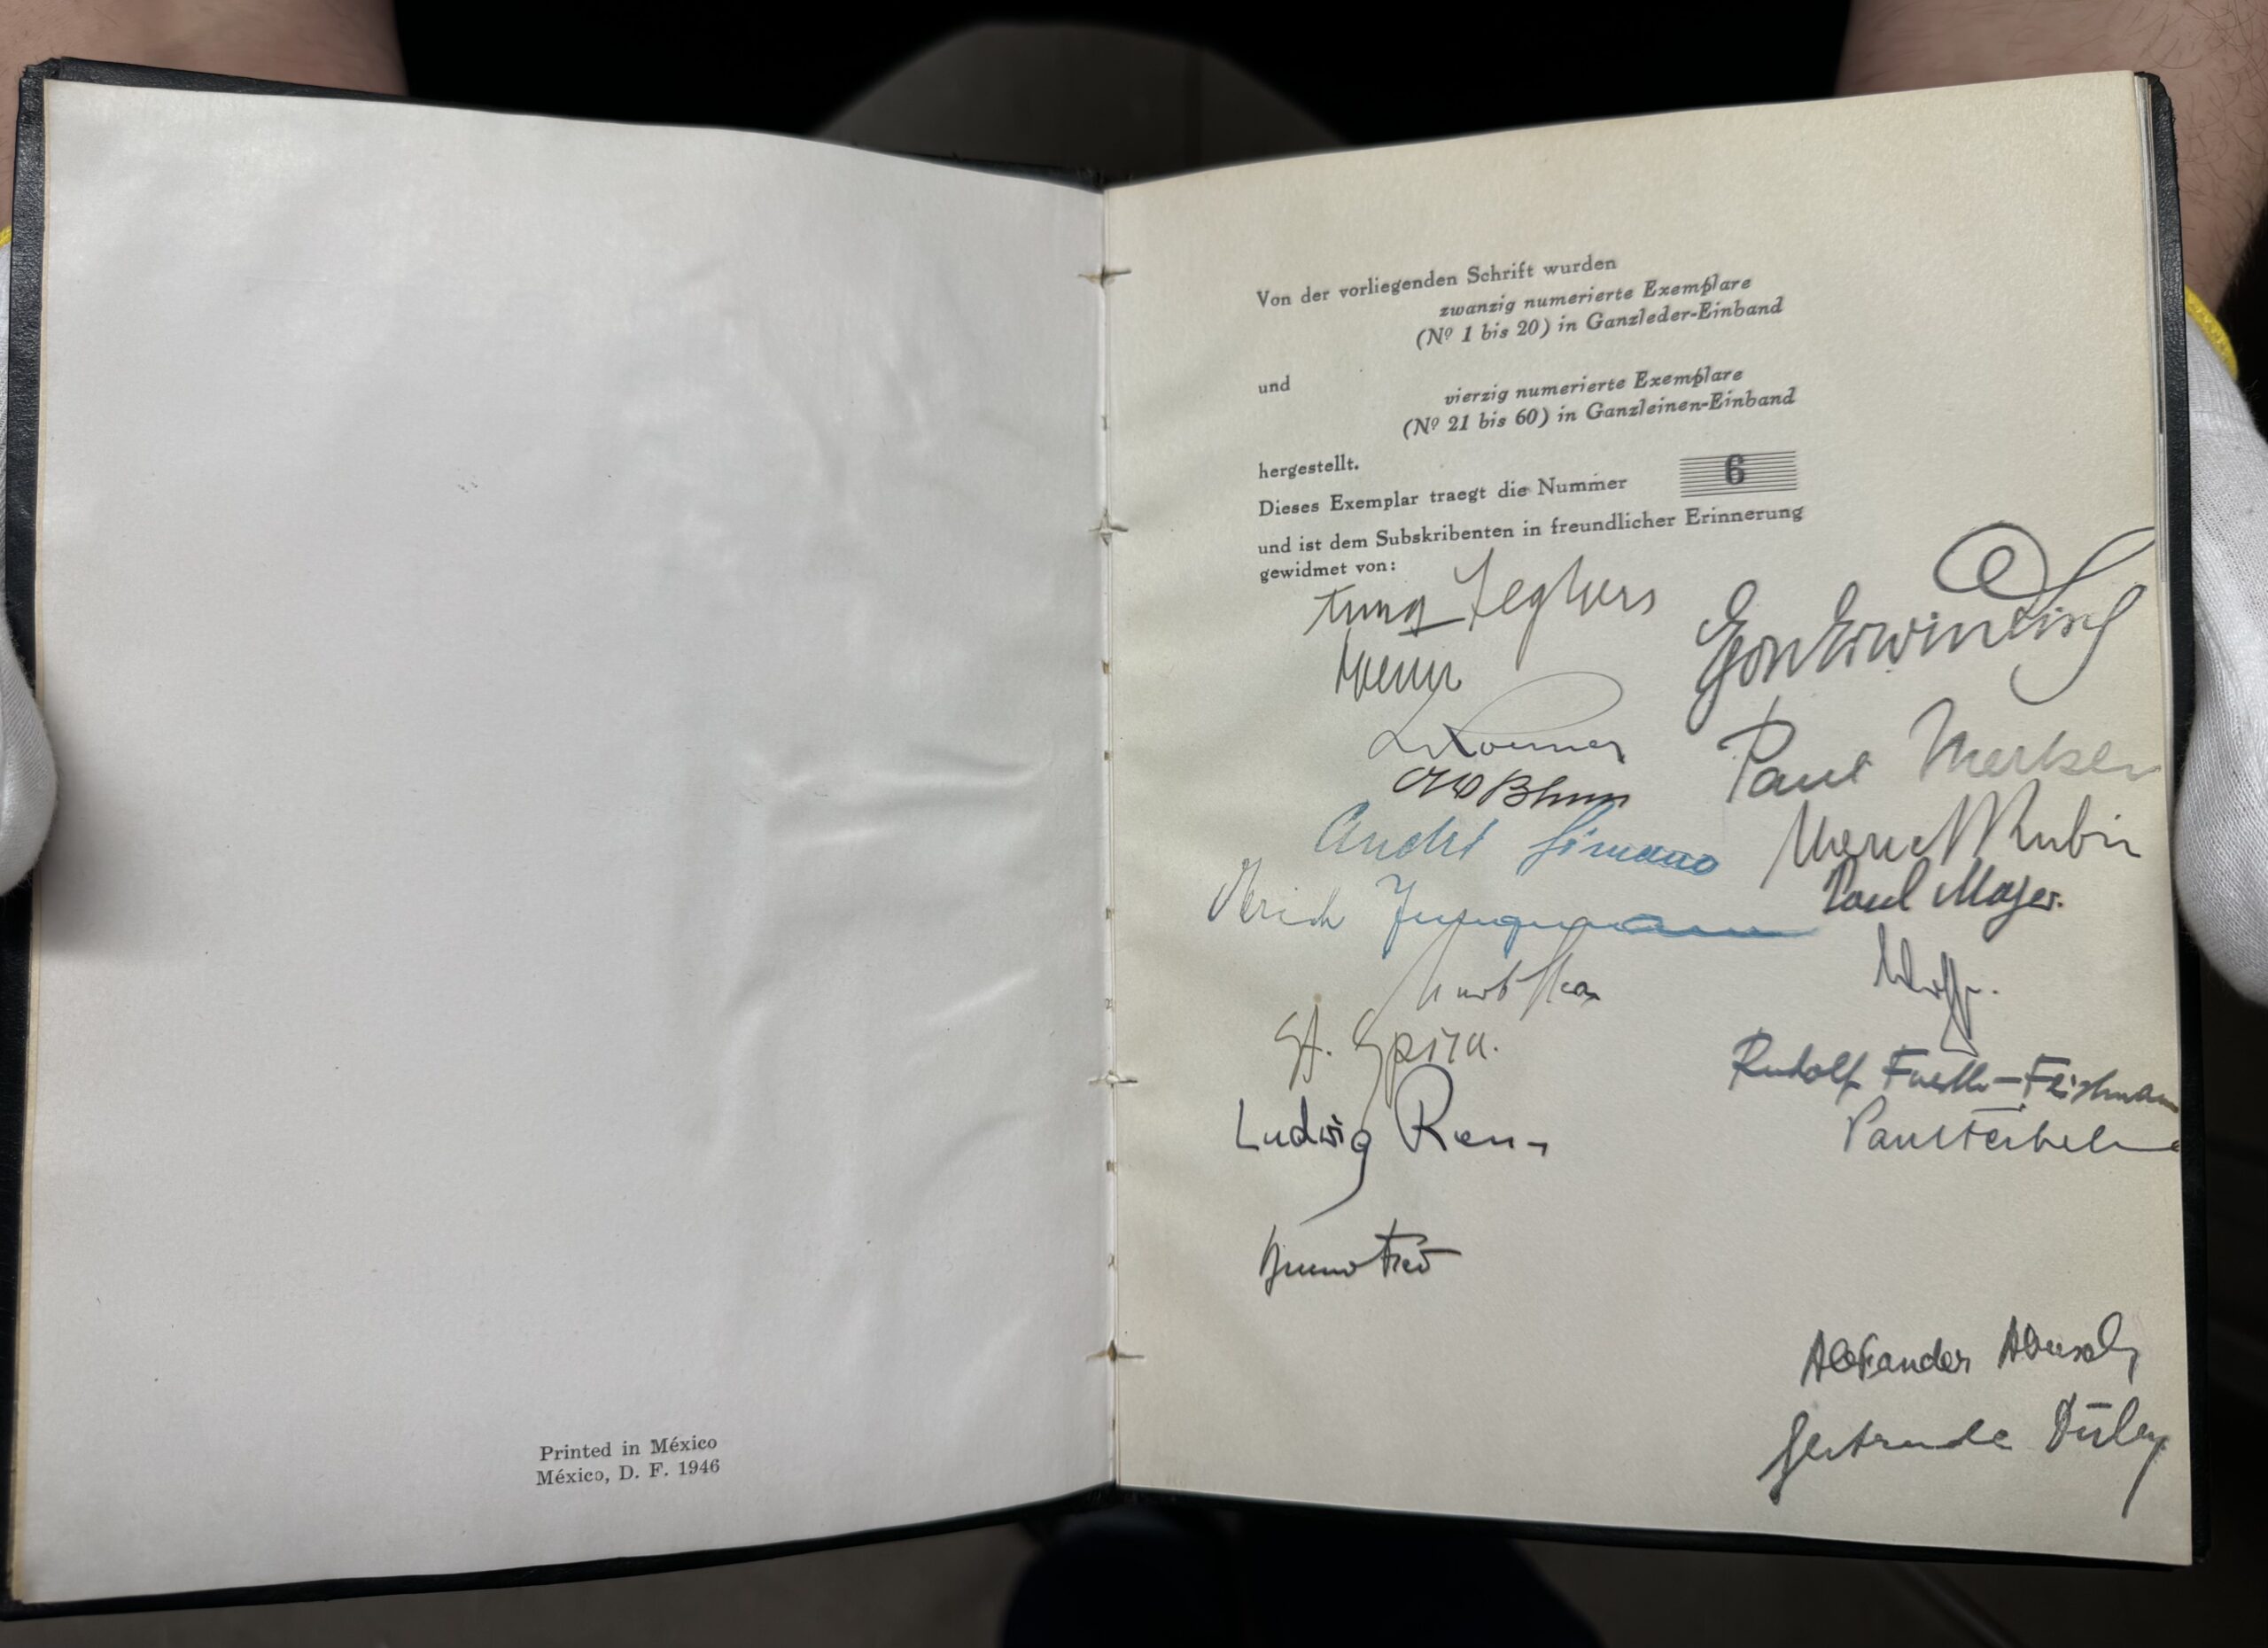 Printed in México
México, D. F. 1946
Von der vorliegenden Schrift wurden
zwanzig numerierte Exemplare
(Nº 1 bis 20) in Ganzleder-Einband
und
vierzig numerierte Exemplare
(Nº 21 bis 60) in Ganzleinen-Einband
hergestellt.
Dieses Exemplar traegt die Nummer 6
und ist dem Subskribenten in freundlicher Erinnerung
gewidmet von:
Anna Seghers
Egon Erwin Kisch
Paul Merker
André Simone
Marcel Rubin
Paul Mayer.
St. Spira.
Rudolf Fuerth-Feistmann
Ludwig Renn
Bruno Frei
Alexander Abusch
Gertrude Düby